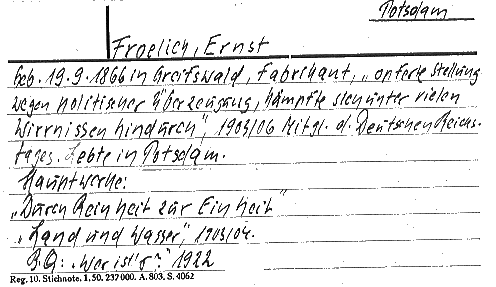 Potsdam
Froelich, Ernst
Geb. 19.9.1866 in Greifswald, Fabrikant, „opferte Stellung
wegen politischer Überzeugung, kämpfte sich unter vielen
Wirrnissen hindurch", 1903/06 Mitgl. d. Deutschen Reichs-
tages. Lebte in Potsdam.
Hauptwerke:
„Durch Reinheit zur Einheit"
„Land und Wasser", 1903/04.
B.Q.: „Wer ist's?" 1922
Reg. 10. Stichnote. 1. 50. 237 000. A. 803. S. 4062